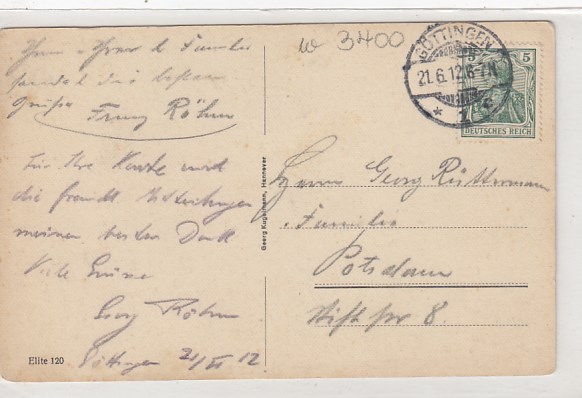 w 3400
GÖTTINGEN
21.6.12.6-7N.
* 1 c
5 5
DEUTSCHES REICH
Ihnen u. Ihrer l. Familie
sendet die besten
Grüße
Franz Röhm
Für Ihre Karte und
die freundl. Mitteilungen
meinen besten Dank
Viele Grüsse
Georg Röhm
Göttingen 21/VI 12
Elite 120
Georg Kugelmann, Hannover
Herrn Georg Rüttermann
Familie
Potsdam
Stiftstr 8.